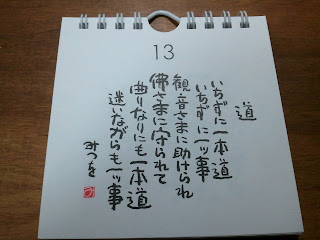 13
道
いちずに一本道
いちずに一ッ事
観音さまに助けられ
佛さまに守られて
曲りなりにも一本道
迷いながらも一ッ事
みつを